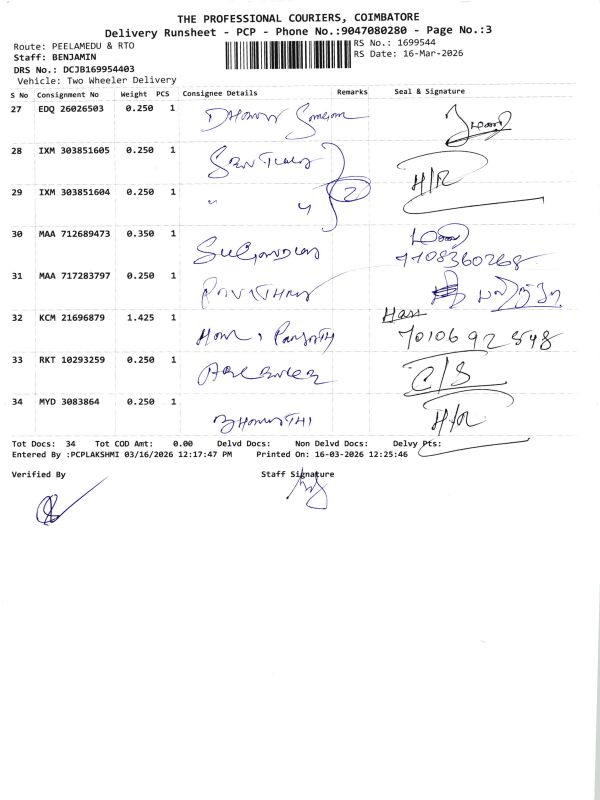 THE PROFESSIONAL COURIERS, COIMBATORE
Delivery Runsheet - PCP - Phone No.:9047080280 - Page No.:3
Route: PEELAMEDU & RTO
RS No.: 1699544
Staff: BENJAMIN
RS Date: 16-Mar-2026
DRS No.: DCJB169954403
Vehicle: Two Wheeler Delivery
S No Consignment No Weight PCS Consignee Details Remarks Seal & Signature
27 EDQ 26026503 0.250 1
28 IXM 303851605 0.250 1 H/R
29 IXM 303851604 0.250 1 " " 2
30 MAA 712689473 0.350 1
31 MAA 717283797 0.250 1
32 KCM 21696879 1.425 1 7010692548
33 RKT 10293259 0.250 1 C/S
34 MYD 3083864 0.250 1 H/R
Tot Docs: 34 Tot COD Amt: 0.00 Delvd Docs: Non Delvd Docs: Delvy Pts:
Entered By :PCPLAKSHMI 03/16/2026 12:17:47 PM Printed On: 16-03-2026 12:25:46
Verified By Staff Signature